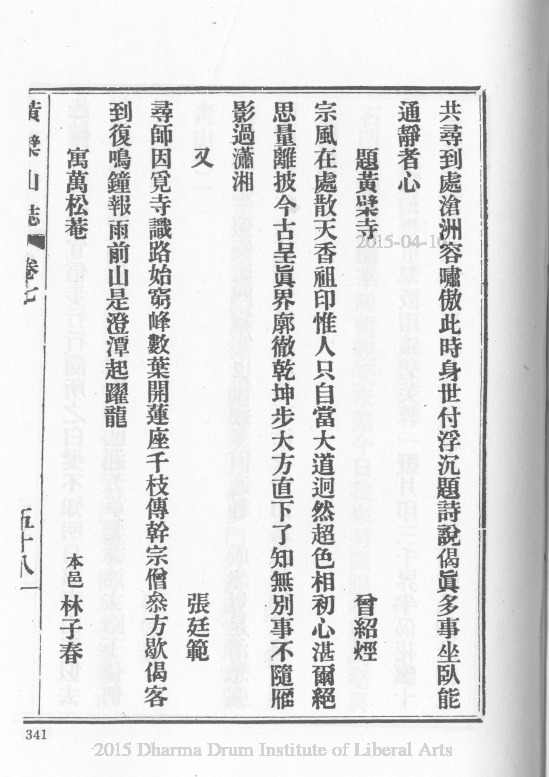 共尋到處滄洲容嘯傲此時身世付浮沉題詩說偈眞多事坐臥能
通靜者心
題黃檗寺 曾紹煙
宗風在處散天香祖印惟人只自當大道迥然超色相初心湛爾絕
思量離披今古呈眞界廓徹乾坤步大方直下了知無別事不隨雁
影過瀟湘
又 張廷範
尋師因覓寺識路始窮峰數葉開蓮座千枝傳幹宗僧叅方歇偈客
到復鳴鐘報雨前山是澄潭起躍龍
寓萬松菴 本邑 林子春
黃檗山誌 卷七 五十八
341
2015-04-16
2015 Dharma Drum Institute of Liberal Arts